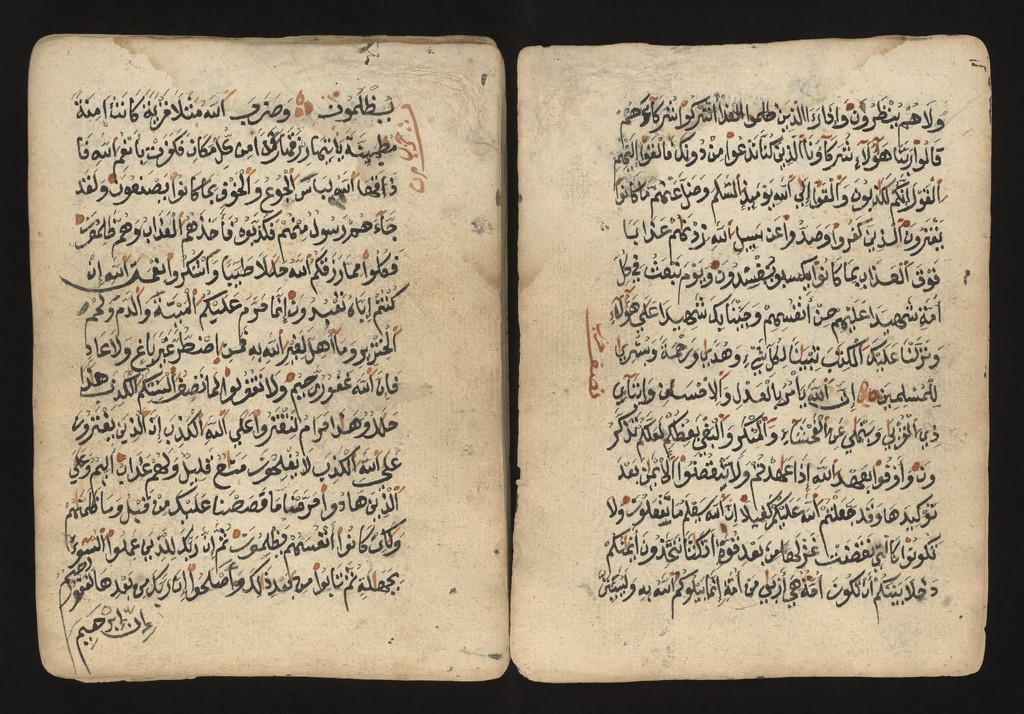 ولا هم ينظرون وإذا رءا الذين ظلموا العذا أشركوا شركاءهم
قالوا ربنا هؤلاء شركاؤنا الذين كنا ندعوا من دونك فألقوا إليهم
القول إنكم لكذبون وألقوا إلى الله يومئذ السلم وضل عنهم ما كانوا
يفترون الذين كفروا وصدوا عن سبيل الله زدنهم عذابا
فوق العذاب بما كانوا يكسبون يفسدون ويوم نبعث في كل
أمة شهيدا عليهم من أنفسهم وجئنا بك شهيدا على هؤلاء
ونزلنا عليك الكتب تبينا لكل شيء وهدى ورحمة وبشرى
للمسلمين إن الله يأمر بالعدل والإحسن وإيتاءي
ذي القربى وينهى عن الفحشاء والمنكر والبغي يعظكم لعلكم تذكر
ون وأوفوا بعهد الله إذا عهدتم ولا تنقضوا الأيمن بعد
توكيدها وقد جعلتم الله عليكم كفيلا إن الله يعلم ما تفعلون ولا
تكونوا كالتي نقضت غزلها من بعد قوة أنكثا تتخذون أيمنكم
دخلا بينكم أن تكون أمة هي أربى من أمة إنما يبلوكم الله به وليبينن
نصف
يظلمون وضرب الله مثلا قرية كانت ءامنة
مطمئنة يأتيها رزقها رغدا من كل مكان فكفرت بأنعم الله فأ
ذاقها الله لباس الجوع والخوف بما كانوا يصنعون ولقد
جاءهم رسول منهم فكذبوه فأخذهم العذاب وهم ظالمون
فكلوا مما رزقكم الله حللا طيبا واشكروا نعمت الله إن
كنتم إياه تعبدون إنما حرم عليكم الميتة والدم ولحم
الخنزير وما أهل لغير الله به فمن اضطر غير باغ ولا عاد
فإن الله غفور رحيم ولا تقولوا لما تصف ألسنتكم الكذب هذا
حلل وهذا حرام لتفتروا على الله الكذب إن الذين يفترون
على الله الكذب لا يفلحون متع قليل ولهم عذاب أليم وعلى
الذين هادوا حرمنا ما قصصنا عليك من قبل وما ظلمنهم
ولكن كانوا أنفسهم يظلمون ثم إن ربك للذين عملوا السوء
بجهلة ثم تابوا من بعد ذلك وأصلحوا إن ربك من بعدها لغفور رحيم
إن إبرهيم